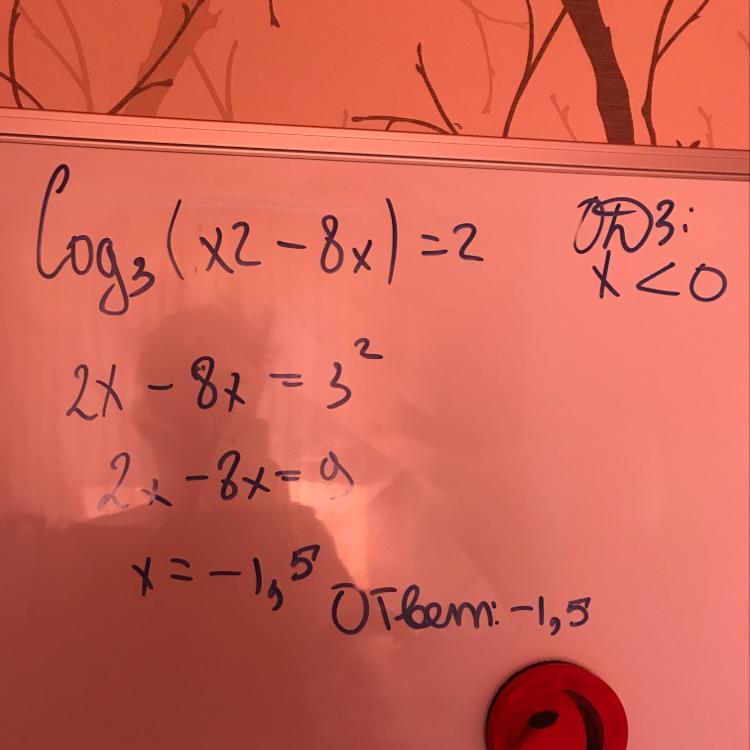 Log₃(x2 - 8x) = 2
ОДЗ:
x < 0
2x - 8x = 3²
2x - 8x = 9
x = -1,5
Ответ: -1,5